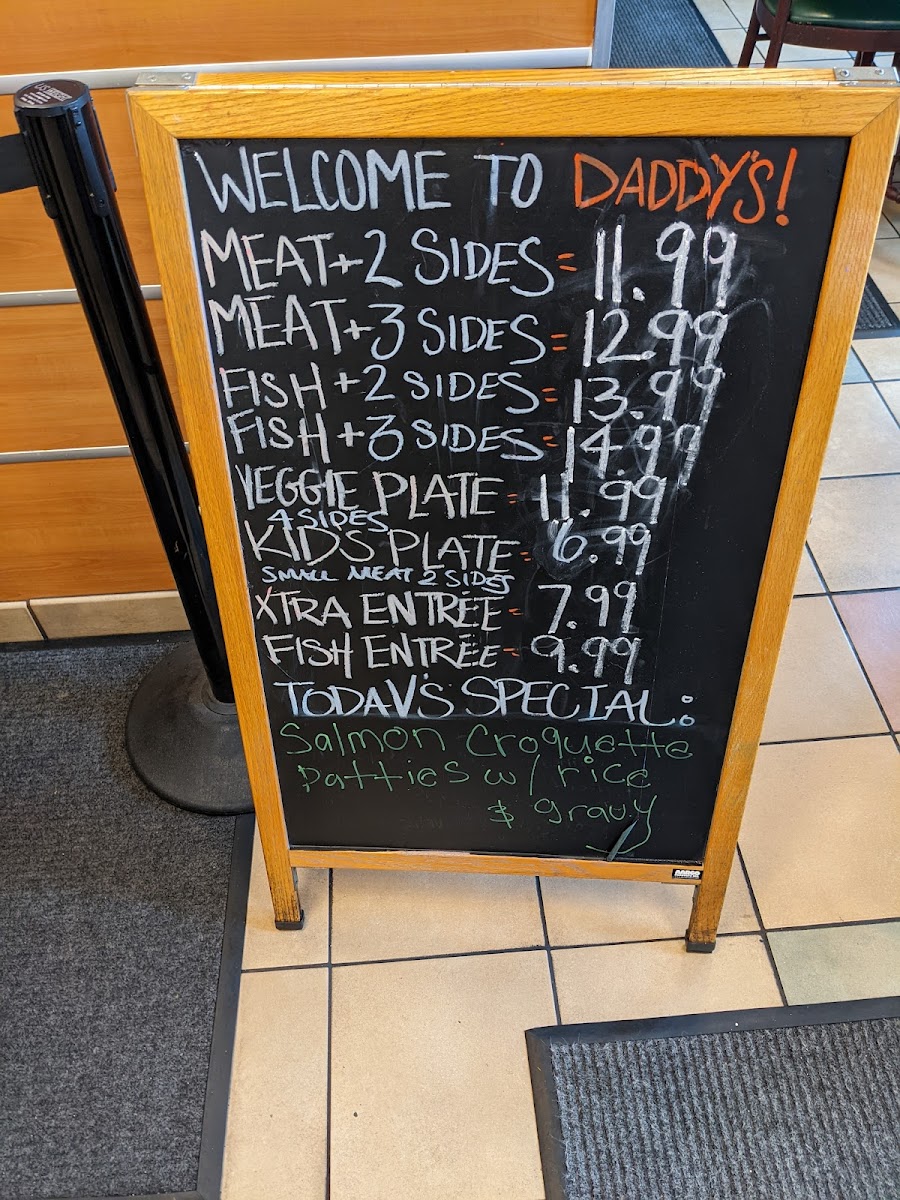 WELCOME TO DADDY'S!
MEAT+2 SIDES = 11.99
MEAT+3 SIDES = 12.99
FISH+2 SIDES = 13.99
FISH+3 SIDES = 14.99
VEGGIE PLATE = 11.99
4 SIDES
KIDS PLATE = 6.99
SMALL MEAT 2 SIDES
XTRA ENTRÉE = 7.99
FISH ENTRÉE - 9.99
TODAY'S SPECIAL:
Salmon Croquette
Patties w/rice
& gravy